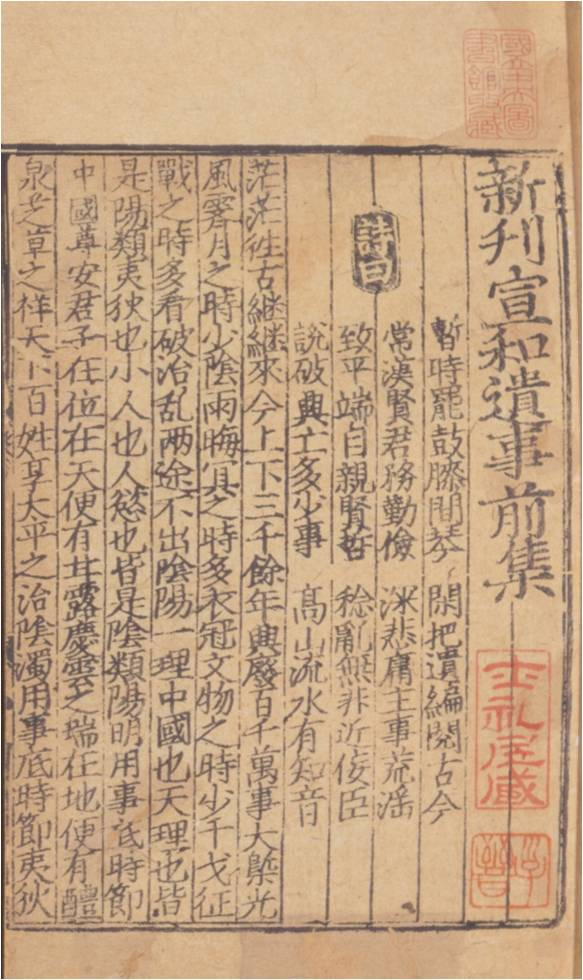 新刋宣和遺事前集
詩曰
暫時罷鼓膝間琴　閑把遺編閱古今
常漢賢君務勤儉　深悲庸主事荒滛
致平端自親賢哲　稔亂無非近佞臣
說破興亡多少事　高山流水有知音
茫茫徃古継継來今上下三千餘年興廢百千萬事大槩光
風霽月之時少陰雨晦冥之時多衣冠文物之時少干戈征
戰之時多看破治乱兩途不出陰陽一理中國也天理也皆
是陽類夷狄也小人也人慾也皆是陰類陽明用事底時節
中國尊安君子在位在天便有甘露慶雲之瑞在地便有醴
泉芝草之祥天下百姓享太平之治陰濁用事底時節夷狄
國立中央圖書館收藏
士礼居藏